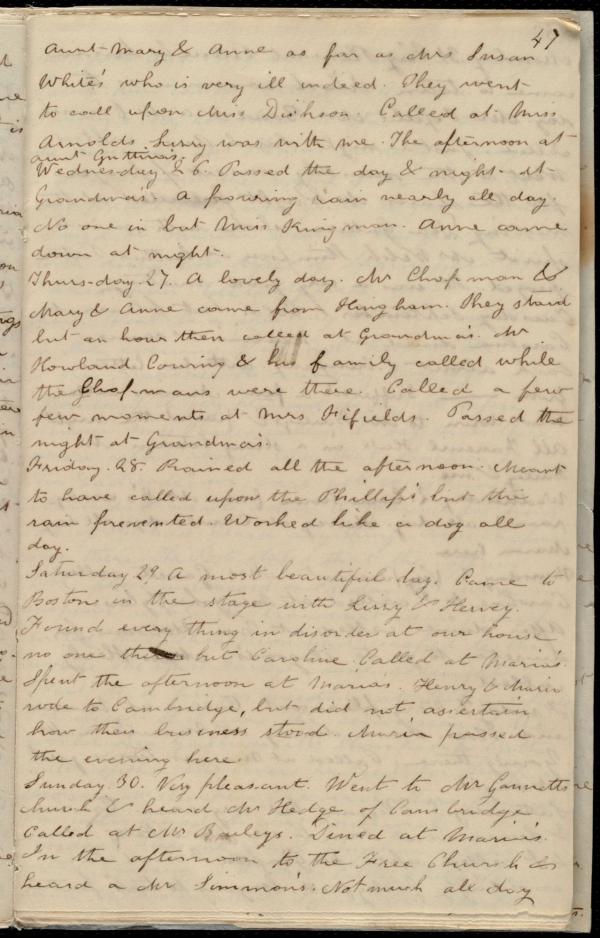 47
Aunt Mary & Anne as far as Mrs Susan
White's who is very ill indeed. They went
to call upon Miss Dickson. Called at Miss
Arnolds. Lizzy was with me. The afternoon at
aunt Guthrie's.
Wednesday 26. Passed the day & night at
Grandma's. A pouring rain nearly all day.
No one in but Miss Kingman. Anne came
down at night.
Thursday 27. A lovely day. Mr Chapman &
Mary & Anne came from Hingham. They staid
but an hour then called at Grandma's. Mr
Howland Cowing & his family called while
the Chapmans were there. Called a few
few moments at Mrs Fifields. Passed the
night at Grandma's.
Friday. 28. Rained all the afternoon. Meant
to have called upon the Phillips's but the
rain prevented. Worked like a dog all
day.
Saturday 29 A most beautiful day. Came to
Boston in the stage with Lizzy & Hervey.
Found every thing in disorder at our house
no one there but Caroline. Called at Maria's.
Spent the afternoon at Maria's. Henry & Maria
rode to Cambridge, but did not assertain
how their business stood. Maria passed
the evening here.
Sunday. 30. Very pleasant. Went to Mr Gannetts
church & heard Mr Hedge of Cambridge
Called at Mr Baileys. Dined at Maria's.
In the afternoon to the Free Church &
heard a Mr Simmons. Not much all day